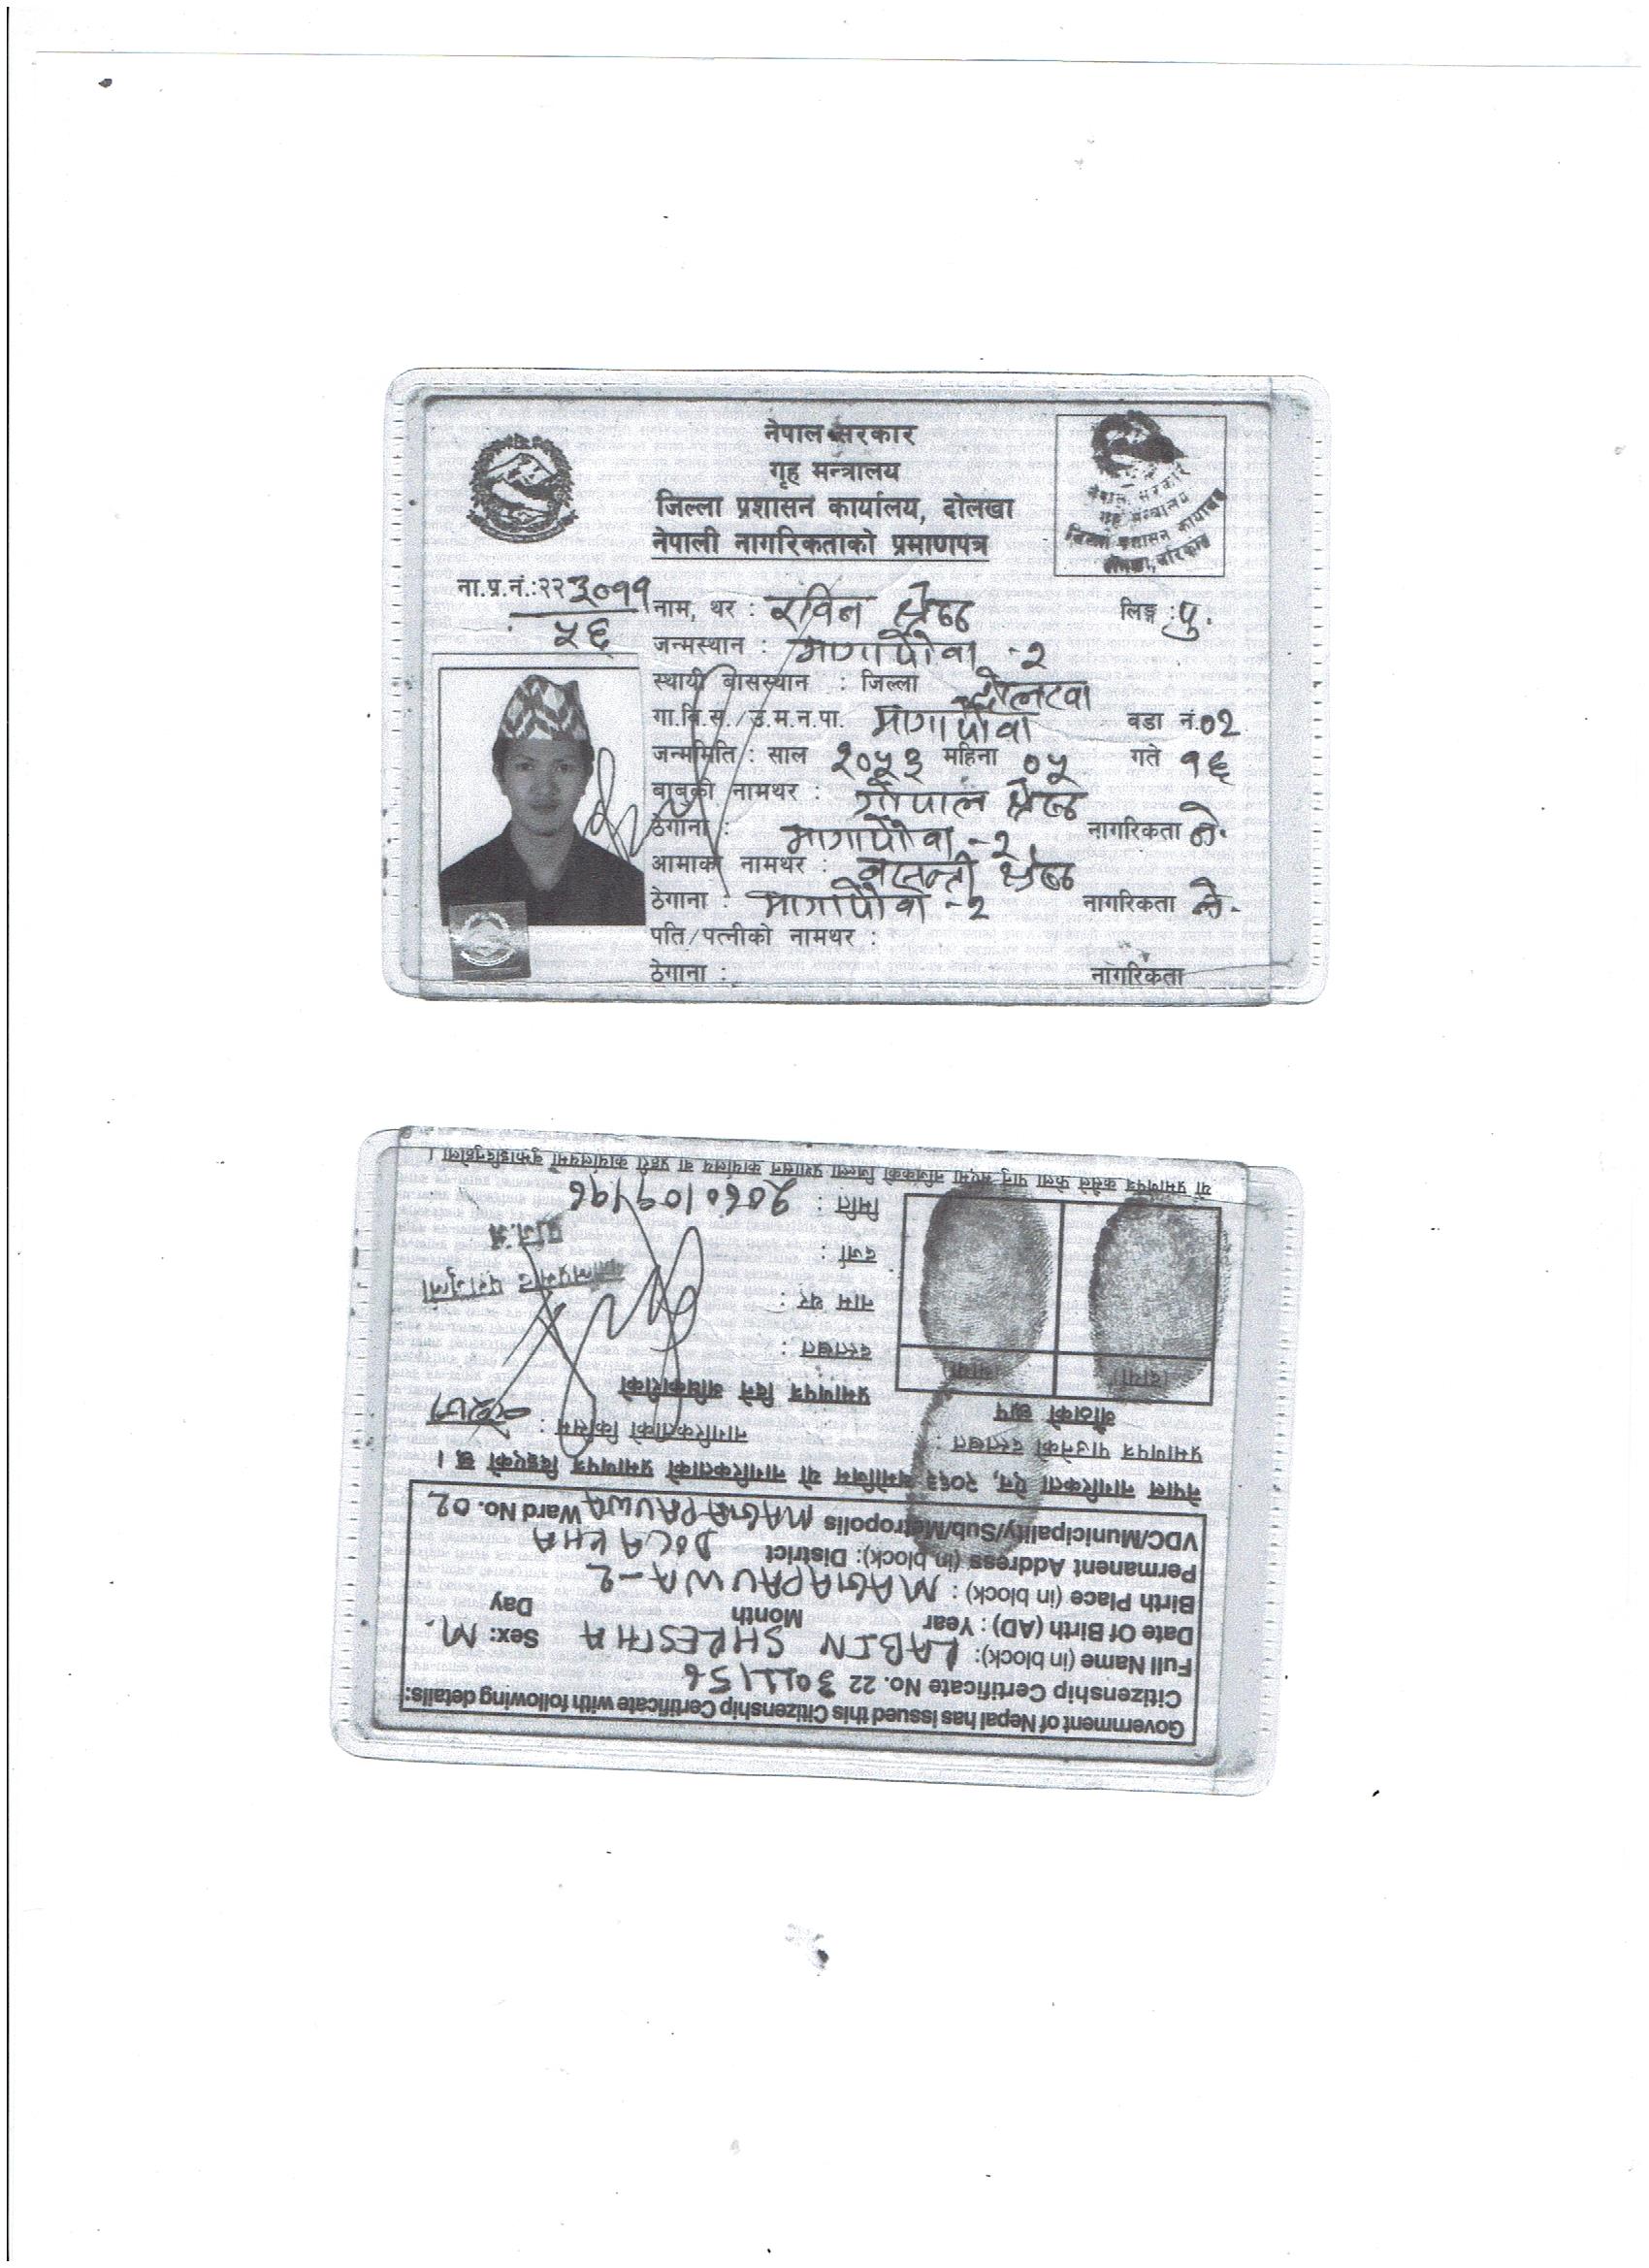 नेपाल सरकार
गृह मन्त्रालय
जिल्ला प्रशासन कार्यालय, दोलखा
नेपाली नागरिकताको प्रमाणपत्र
नेपाल सरकार
गृह मन्त्रालय
जिल्ला प्रशासन कार्यालय
ना.प्र.नं.:२२ ३०११
५६
नाम, थर : रविन श्रेष्ठ लिङ्ग : पु.
जन्मस्थान : मागापौवा -२
स्थायी बासस्थान : जिल्ला दोलखा
गा.वि.स./उ.म.न.पा. मागापौवा वडा नं.०२
जन्ममिति : साल २०५३ महिना ०५ गते १६
बाबुको नामथर : गोपाल श्रेष्ठ
ठेगाना : मागापौवा -२ नागरिकता ने.
आमाको नामथर : बसन्ती श्रेष्ठ
ठेगाना : मागापौवा -२ नागरिकता ने.
पति/पत्नीको नामथर :
ठेगाना : नागरिकता
Government of Nepal has issued this Citizenship Certificate with following details:
Citizenship Certificate No. 22 3011/56
Full Name (in block): LABIN SHRESTHA Sex: M.
Date Of Birth (AD) : Year Month Day
Birth Place (in block) : MAGAPAUWA-2
Permanent Address (in block): District DOLAKHA
VDC/Municipality/Sub/Metropolis MAGAPAUWA Ward No. 02
नेपाल नागरिकता ऐन, २०६३ बमोजिम यो नागरिकताको प्रमाणपत्र दिइएको छ ।
प्रमाणपत्र पाउनेको दस्तखत :
नागरिकताको किसिम : वंशज
औंठाको छाप
दायाँ बायाँ
प्रमाणपत्र दिने अधिकारीको
दस्तखत :
नाम थर :
दर्जा : प्र.जि.अ
मिति :
यो प्रमाणपत्र कसैले फेला पारेमा नजिकको जिल्ला प्रशासन कार्यालय वा प्रहरी कार्यालयमा बुझाइदिनुहोला ।